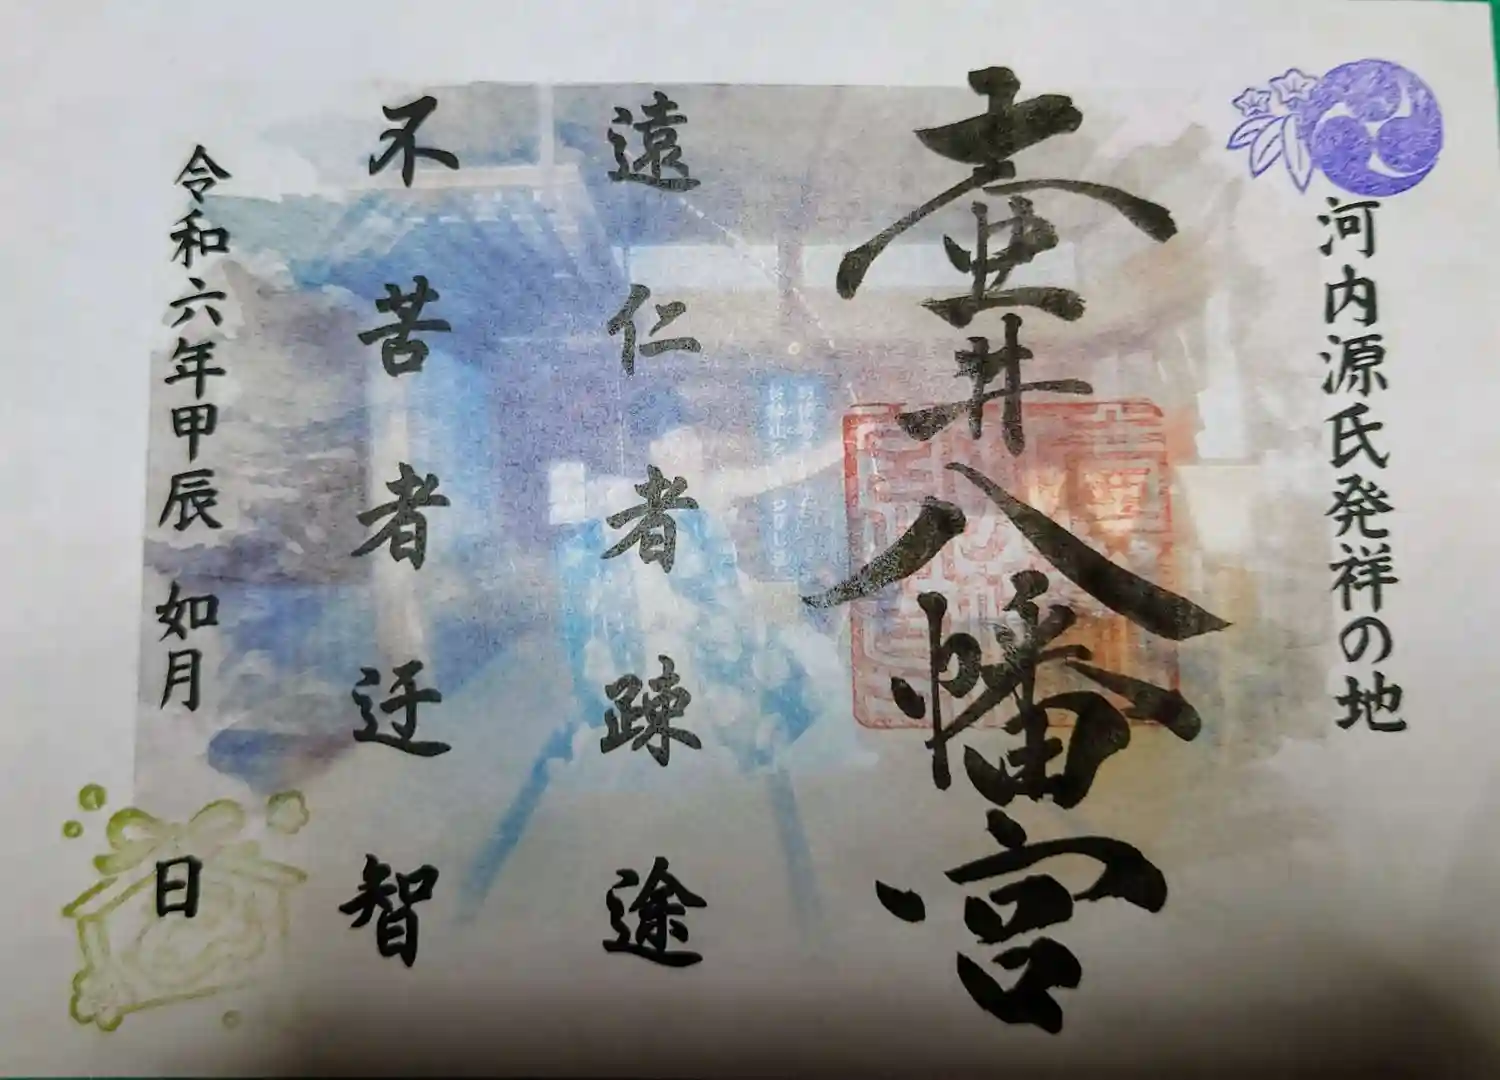 河内源氏発祥の地
壷井八幡宮
遠仁者疎途
不苦者迂智
令和六年甲辰 如月 日